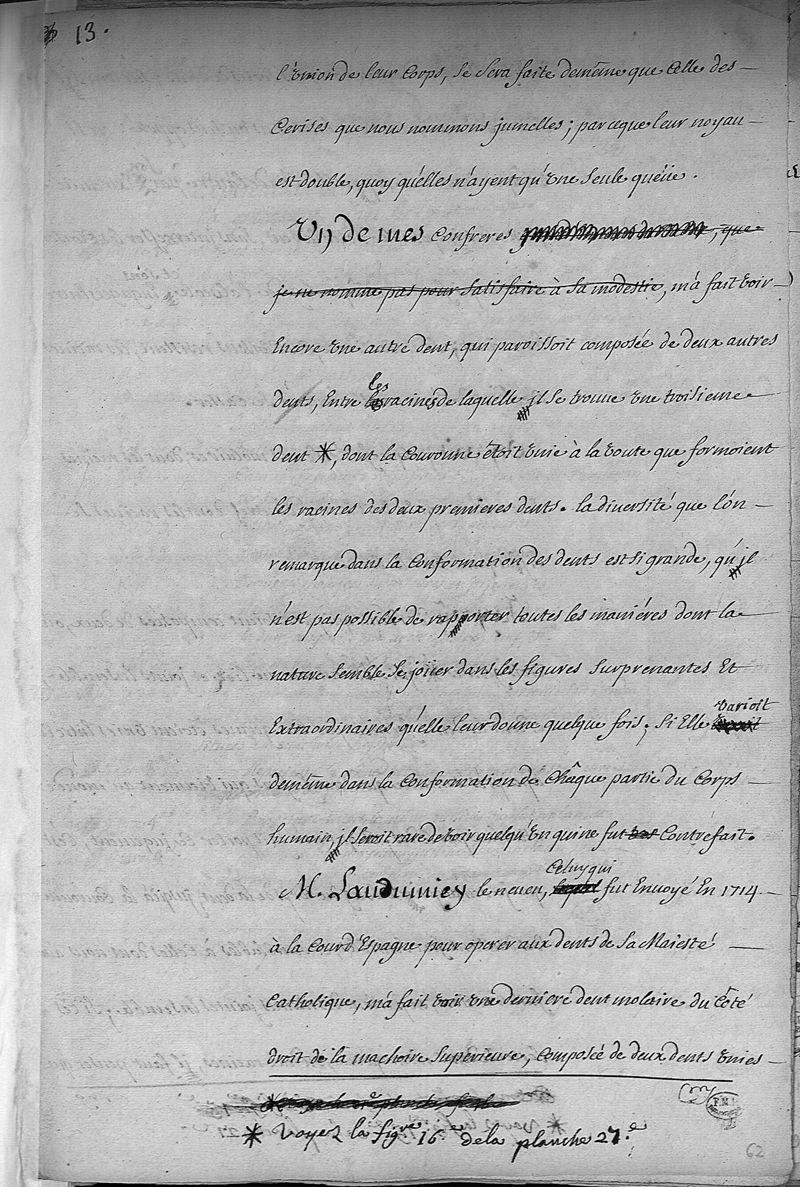 13.
l'Union de leur Corps, se sera faite demême que Celle des
Cerises que nous nommons jumelles; parceque leur noyau
est double, quoy qu'elles n'ayent qu'une seule queüe.
Un de mes Confreres , que
je ne nomme pas pour satisfaire à sa modestie, m'a fait voir
Encore une autre dent, qui paroissoit composée de deux autres
dents, Entre les racines de laquelle jl se trouve une troisieme
dent *, dont la Couronne êtoit unie à la voute que formoient
les racines des deux premieres dents. la diversité que l'on
remarque dans la Conformation des dents est si grande, qu'jl
n'est pas possible de rapporter toutes les maniéres dont la
nature semble se joüer dans les figures surprenantes Et
Extraordinaires qu'elle leur donne quelque fois; si Elle
varioit
demême dans la Conformation de Châque partie du Corps
humain, jl seroit rare de voir quelqu'un qui ne fut pas Contrefait.
Celuy qui
M. Laudumiey le neveu, fut Envoyé En 1714
à la Cour d'Espagne pour operer aux dents de Sa Majesté
Catholique, m'a fait voir une derniere dent molaire du Côté
droit de la machoire superieure, Composée de deux dents unies
* Voyez la figure 16e de la planche 27.e
62